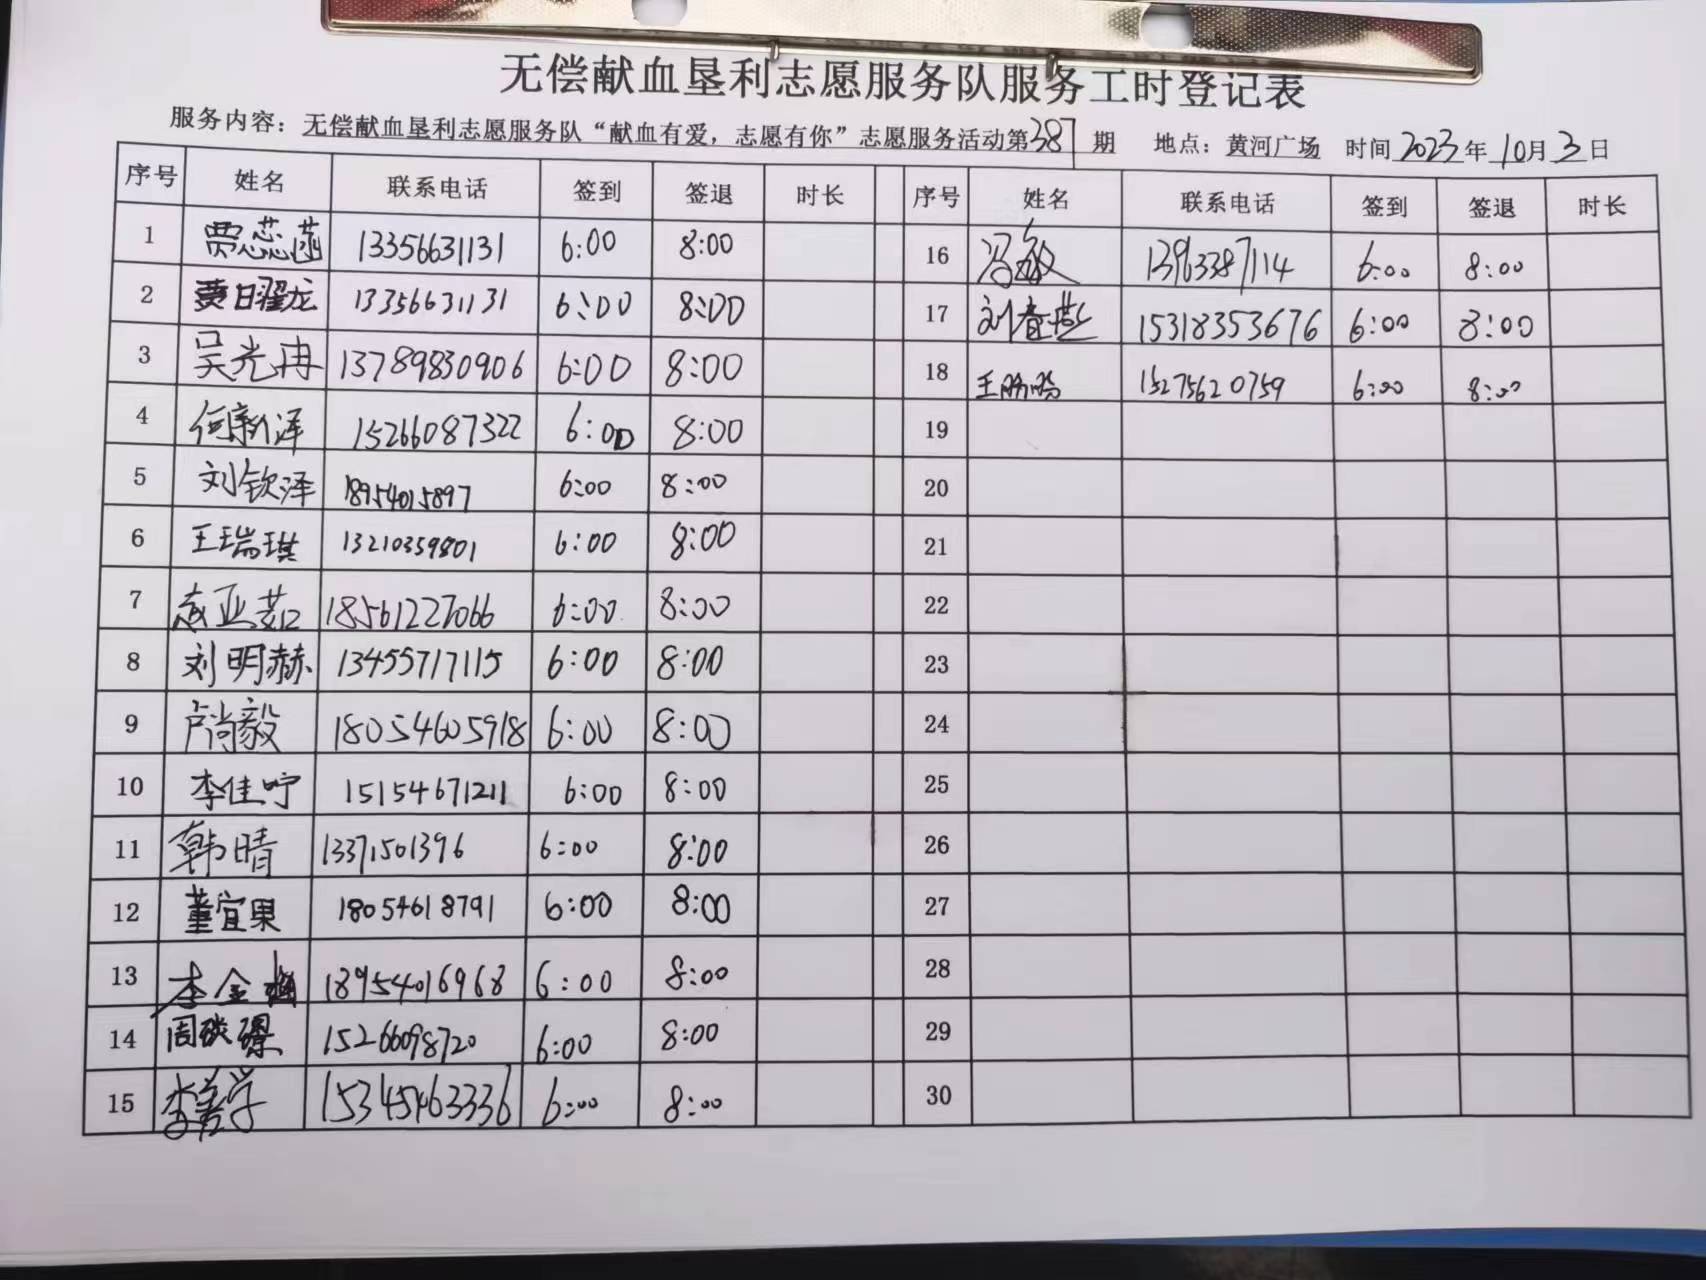 无偿献血垦利志愿服务队服务工时登记表
服务内容：无偿献血垦利志愿服务队“献血有爱，志愿有你”志愿服务活动第387期 地点：黄河广场 时间2023年10月3日
序号 姓名 联系电话 签到 签退 时长 序号 姓名 联系电话 签到 签退 时长
1 贾蕊菡 13356631131 6:00 8:00 16 冯敏 13963387114 6:00 8:00
2 贾日耀龙 13356631131 6:00 8:00 17 刘春燕 15318353676 6:00 8:00
3 吴光冉 13789830906 6:00 8:00 18 王鹏鹏 15275620759 6:00 8:00
4 何新泽 15266087322 6:00 8:00 19
5 刘钦泽 18954015897 6:00 8:00 20
6 王瑞琪 13210359801 6:00 8:00 21
7 亚茹 18561227066 6:00 8:00 22
8 刘明赫 13455717115 6:00 8:00 23
9 卢尚毅 18054605918 6:00 8:00 24
10 李佳咛 15154671211 6:00 8:00 25
11 韩晴 13371501396 6:00 8:00 26
12 董宜果 18054618791 6:00 8:00 27
13 李金 18954016968 6:00 8:00 28
14 周 15266098720 6:00 8:00 29
15 李善学 15345463336 6:00 8:00 30